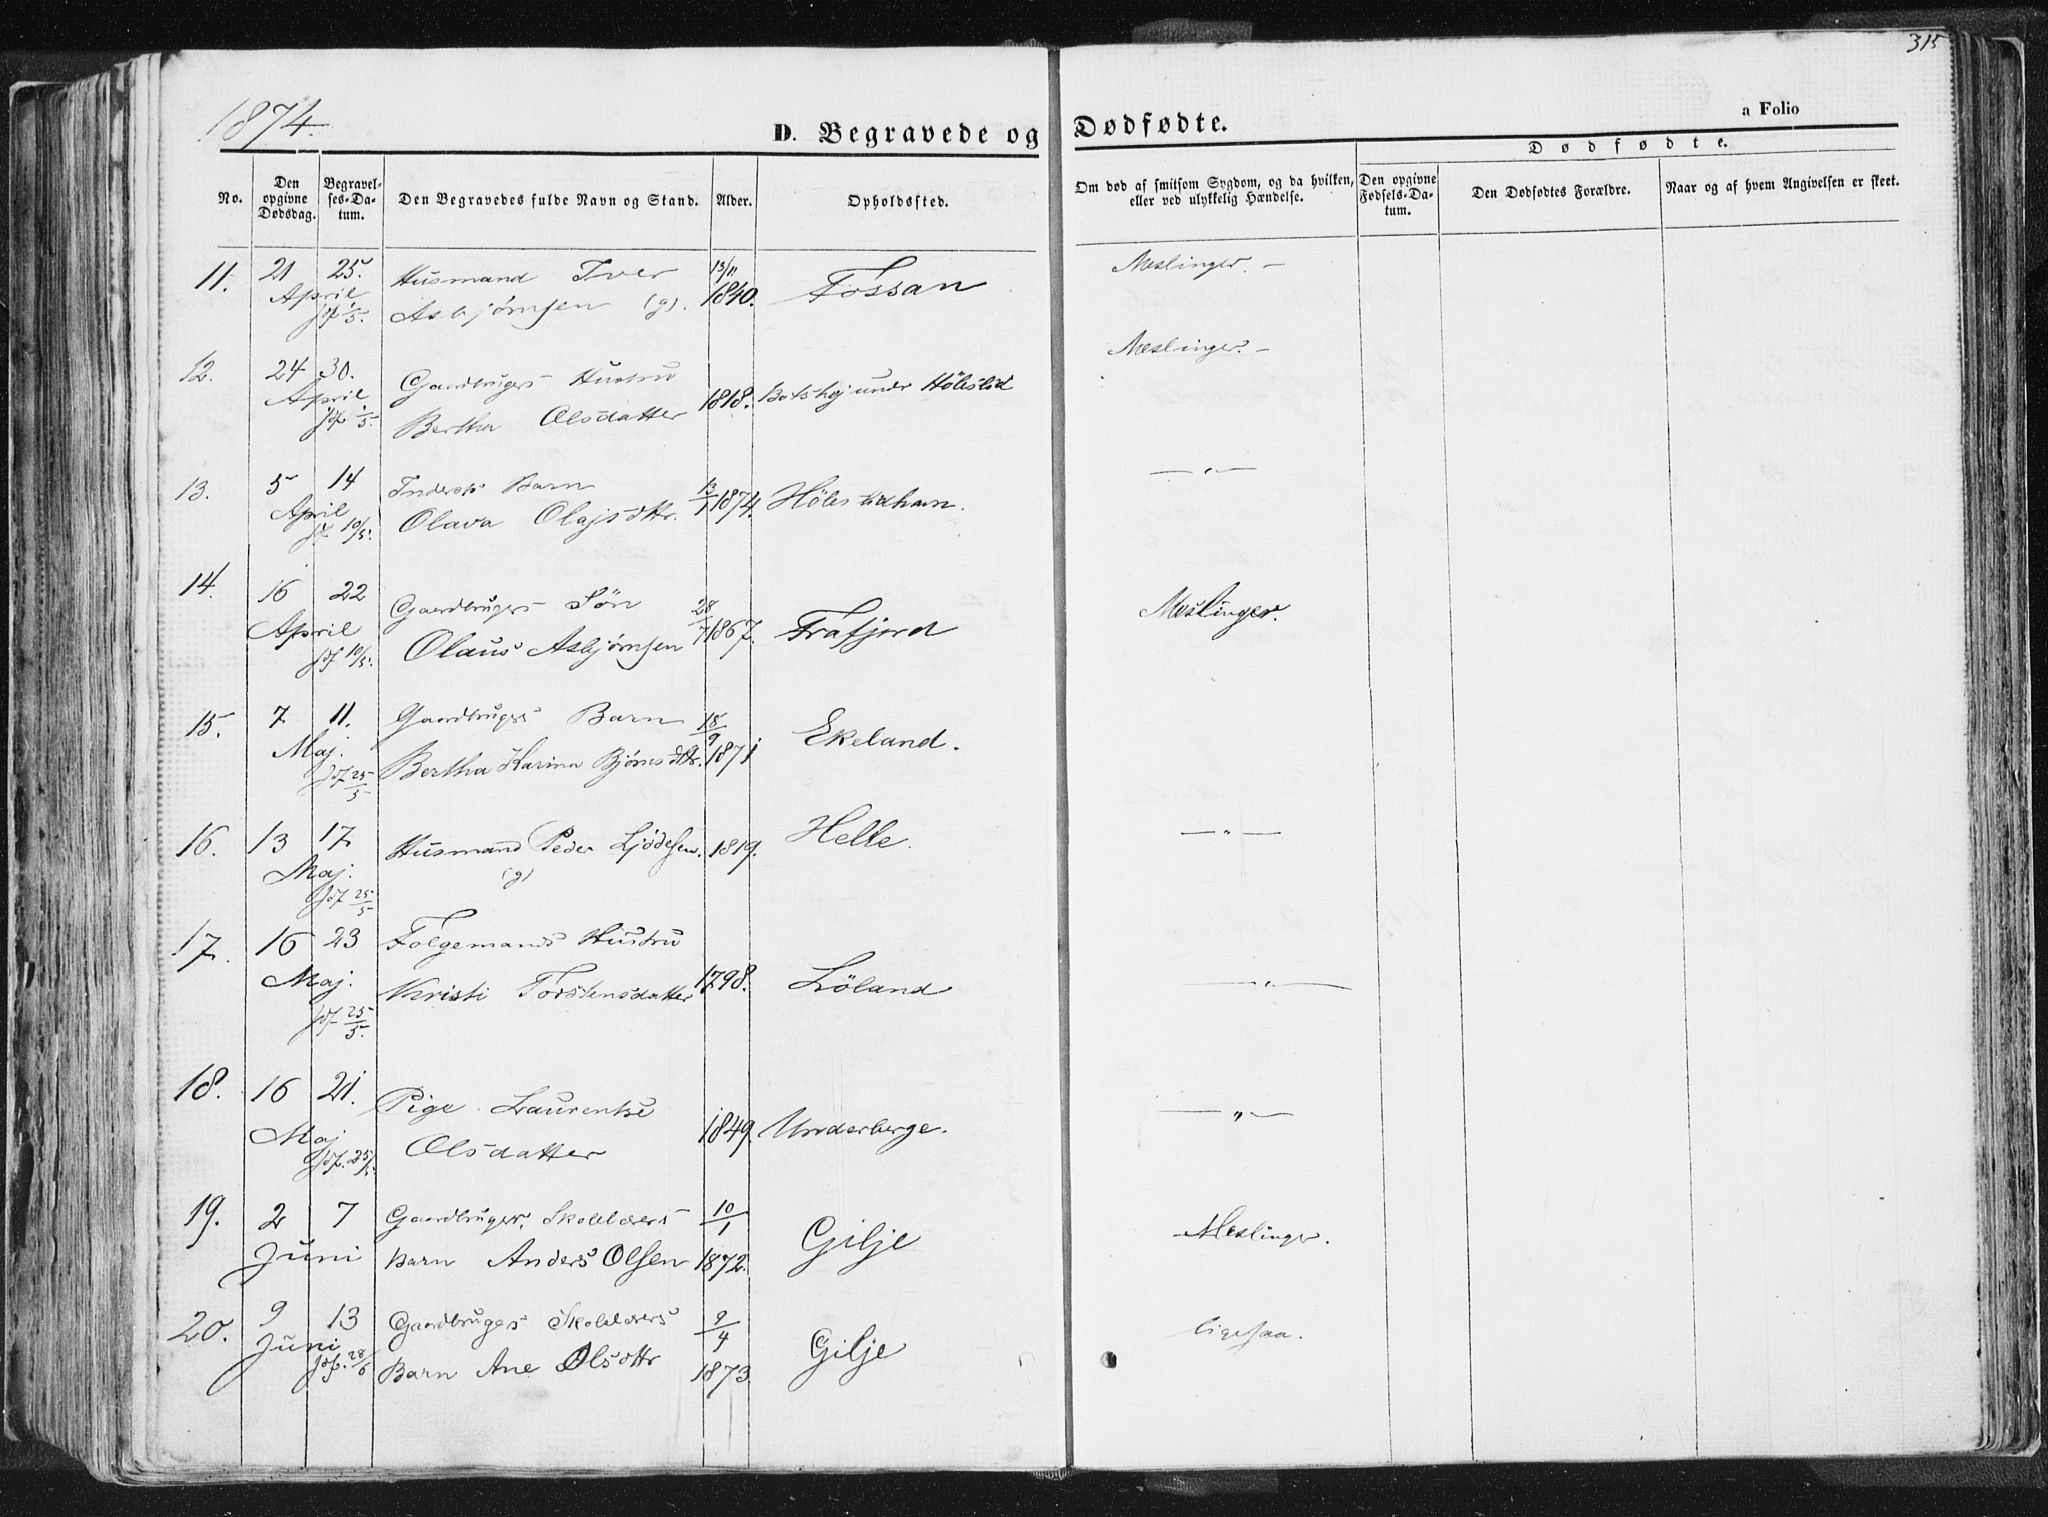 315
1874.
D. Begravede og Dødfødte.
a Folio
Dødfødte.
No.
Den opgivne Dødsdag.
Begravelses-Datum.
Den Begravedes fulde Navn og Stand.
Alder.
Opholdssted.
Om død af smitsom Sygdom, og da hvilken, eller ved ulykkelig Hændelse.
Den opgivne Fødsels-Datum.
Den Dødfødtes Forældre.
Naar og af hvem Angivelsen er skeet.
11. 21 April 25. jdf 1/5. Husmand Iver Asbjørnsen (g). 13/11 1840. Fossan Meslinger. —
12. 24 April 30. jdf 1/5. Gaardbrugers Hustru Bertha Olsdatter 1818. under Höleslid Meslinger. —
13. 5 April 14 jdf 10/5. Indersts Barn Olava Olajsdttr. 13/1 1874. — " —
14. 16 April 22 jdf 10/5. Gaardbrugers Sön Olaus Asbjørnsen 28/7 1867. Frafjord Meslinger.
15. 7 Maj. 11. jdf 25/5 Gaardbrugers Barn Bertha Karina Bjørnsdttr. 18/9 1871 Ekeland.
16. 13 Maj. 17 jdf 25/5 Husmand Peder Ljödesen. (g) 1819. Helle. — " —
17. 16 Maj. 23 jdf 25/5. Folgemands Hustru Kristi Torstensdatter 1798. Löland — " —
18. 16 Maj 21. jdf. 25/5. Pige Laurentse Olsdatter 1849. Underberge. — " —
19. 2 Juni 7 Gaardbruger, Skolelærers Barn Anders Olsen 10/1 1872. Gilje Meslinger.
20. 9 Juni 13 jdf. 28/6 Gaardbrugers Skolelærers Barn Ane Olsdttr 9/4 1873. Gilje ligesaa.